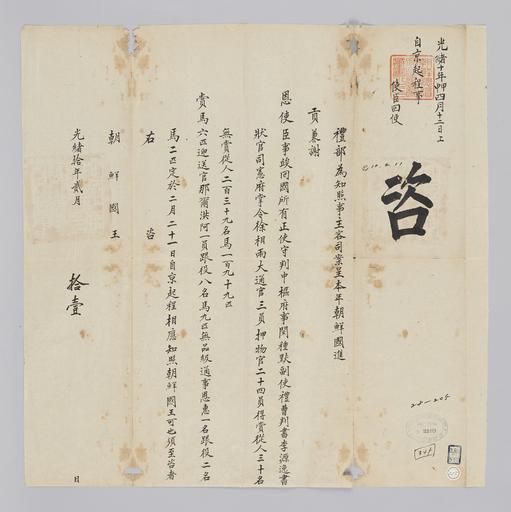 光緒十年甲申四月十三日上
自京起程事
使臣回便
咨
禮部為知照事主客司案呈本年朝鮮國進
貢兼謝
恩使臣事竣回國所有正使守判中樞府事閔種默副使禮曹判書李源逸書
狀官司憲府掌令徐相雨大通官三員押物官二十四員得賞從人三十名
無賞從人二百三十九名馬一百九十九匹
賞馬六匹迎送官那爾洪阿一員跟役八名馬九匹無品級通事恩惠一名跟役二名
馬二匹定於二月二十一日自京起程相應知照朝鮮國王可也須至咨者
右咨
朝鮮國王
光緒拾年貳月
拾壹
日